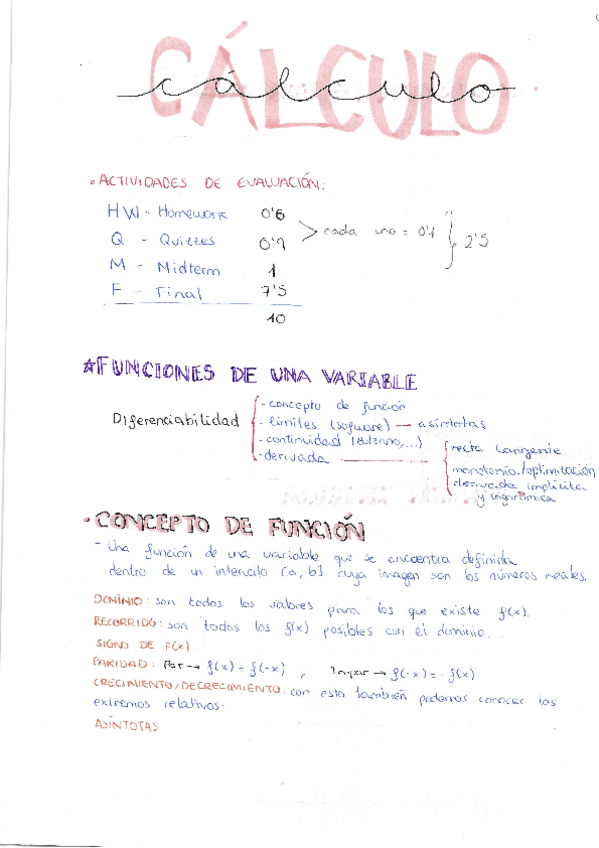 CÁLCULO
cálculo
• ACTIVIDADES DE EVALUACIÓN:
HW - Homework 0'6
Q - Quizzes 0'9 > cada uno = 0'1 } 2'5
M - Midterm 1
F - Final 7'5
10
☆ FUNCIONES DE UNA VARIABLE
Diferenciabilidad { - concepto de función
- límites (software) → asíntotas
- continuidad (Bolzano,...)
- derivada — { recta tangente
monotonía/optimización
derivada implícita
y logarítmica
• CONCEPTO DE FUNCIÓN
- Una función de una variable que se encuentra definida
dentro de un intervalo [a, b] cuya imagen son los números reales.
DOMINIO: son todos los valores para los que existe f(x).
RECORRIDO: son todos los f(x) posibles con el dominio.
SIGNO DE F(x)
PARIDAD: Par → f(x) = f(-x) , Impar → f(-x) = -f(x)
CRECIMIENTO/DECRECIMIENTO: con esto también podemos conocer los
extremos relativos.
ASÍNTOTAS